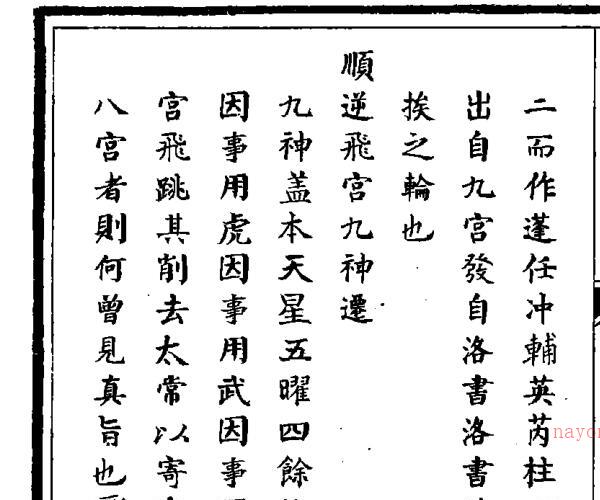 二而作蓬任冲輔英芮柱
出自九宮發自洛書洛書
挨之輪也
順逆飛宮九神遷
九神盖本天星五曜四餘
因事用虎因事用武因事
宮飛跳其削去太常以寄
八宮者則何曾見真旨也
nayo